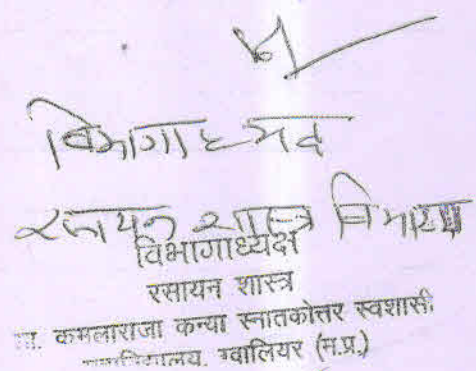 विभागाध्यक्ष
रसायन शास्त्र विभाग
विभागाध्यक्ष
रसायन शास्त्र
कमलाराजा कन्या स्नातकोत्तर स्वशासी
ग्वालियर (म.प्र.)